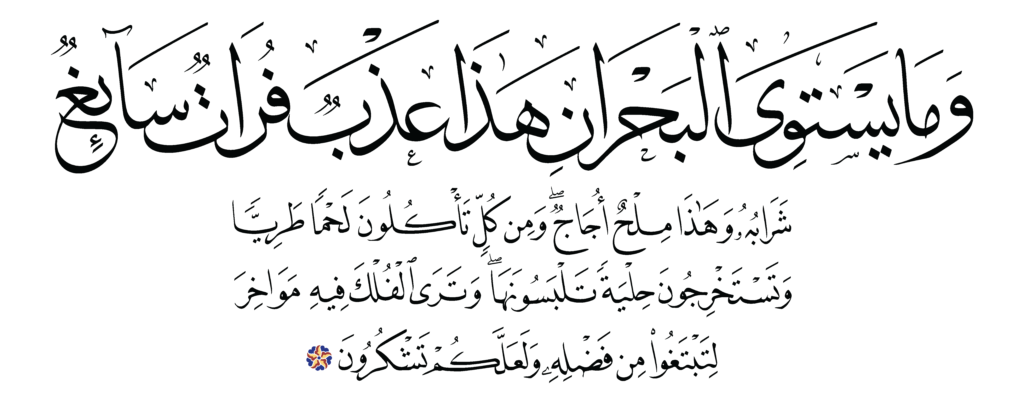 وَمَا يَسْتَوِى ٱلْبَحْرَانِ هَٰذَا عَذْبٌ فُرَاتٌ سَآئِغٌ
شَرَابُهُۥ وَهَٰذَا مِلْحٌ أُجَاجٌ ۖ وَمِن كُلٍّ تَأْكُلُونَ لَحْمًا طَرِيًّا
وَتَسْتَخْرِجُونَ حِلْيَةً تَلْبَسُونَهَا ۖ وَتَرَى ٱلْفُلْكَ فِيهِ مَوَاخِرَ
لِتَبْتَغُوا۟ مِن فَضْلِهِۦ وَلَعَلَّكُمْ تَشْكُرُونَ